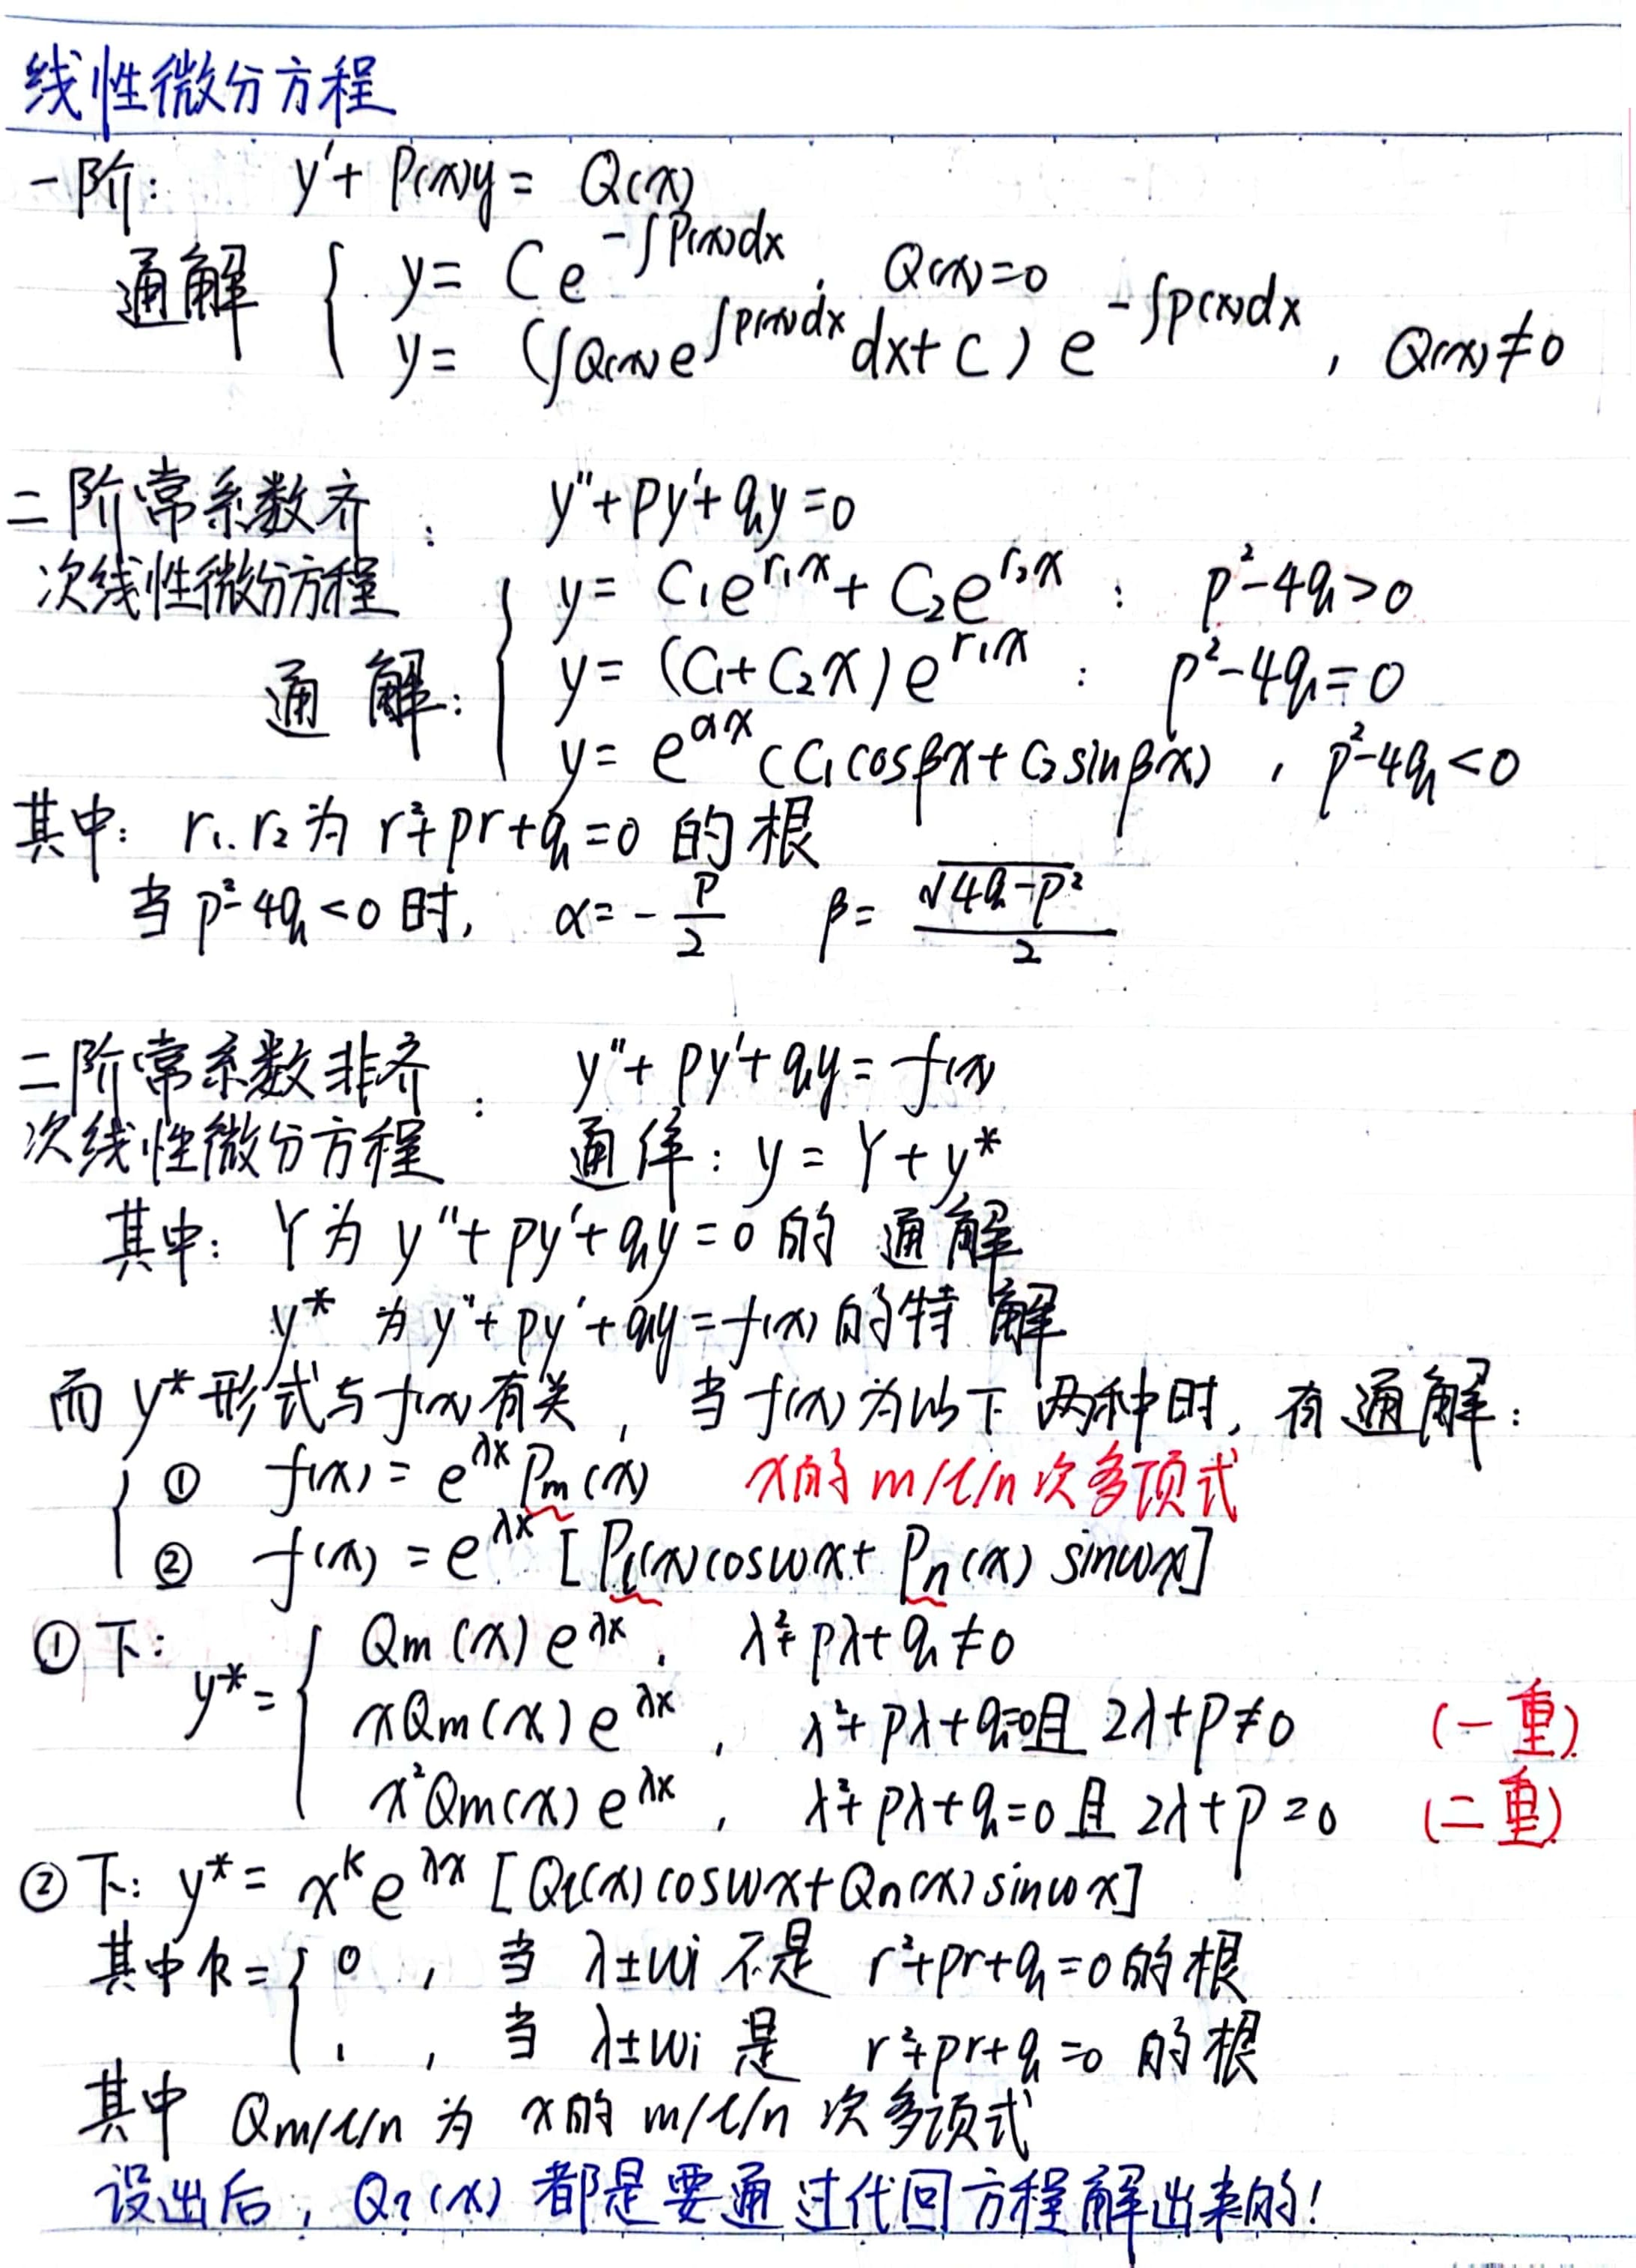 线性微分方程
一阶: y' + P(x)y = Q(x)
通解 { y = Ce^{-∫P(x)dx}, Q(x)=0
y = (∫Q(x)e^{∫P(x)dx}dx + C) e^{-∫P(x)dx}, Q(x)≠0
二阶常系数齐
次线性微分方程 : y''+py'+qy=0
通解: { y = C₁e^{r₁x} + C₂e^{r₂x} : p²-4q>0
y = (C₁+C₂x)e^{r₁x} : p²-4q=0
y = e^{αx}(C₁cosβx+C₂sinβx), p²-4q<0
其中: r₁.r₂为 r²+pr+q=0 的根
当 p²-4q<0 时, α=-p/2 β=√(4q-p²)/2
二阶常系数非齐
次线性微分方程 : y''+py'+qy=f(x)
通解: y=Y+y*
其中: Y为 y''+py'+qy=0 的 通解
y* 为 y''+py'+qy=f(x) 的特解
而 y* 形式与f(x)有关, 当f(x)为以下两种时, 有通解:
{ ① f(x)=e^{λx}Pm(x) x的 m/l/n 次多项式
② f(x)=e^{λx}[Pl(x)cosωx+Pn(x) sinωx]
①下: y*= { Qm(x)e^{λx}, λ²+pλ+q≠0
xQm(x)e^{λx}, λ²+pλ+q=0且 2λ+p≠0 (一重)
x²Qm(x)e^{λx}, λ²+pλ+q=0 且 2λ+p=0 (二重)
②下: y*= x^k e^{λx} [Ql(x)cosωx+Qn(x)sinωx]
其中k= { 0 , 当 λ±ωi 不是 r²+pr+q=0的根
1 , 当 λ±ωi 是 r²+pr+q=0 的根
其中 Qm/l/n 为 x的 m/l/n 次多项式
设出后, Q?(x) 都是要通过代回方程解出来的!